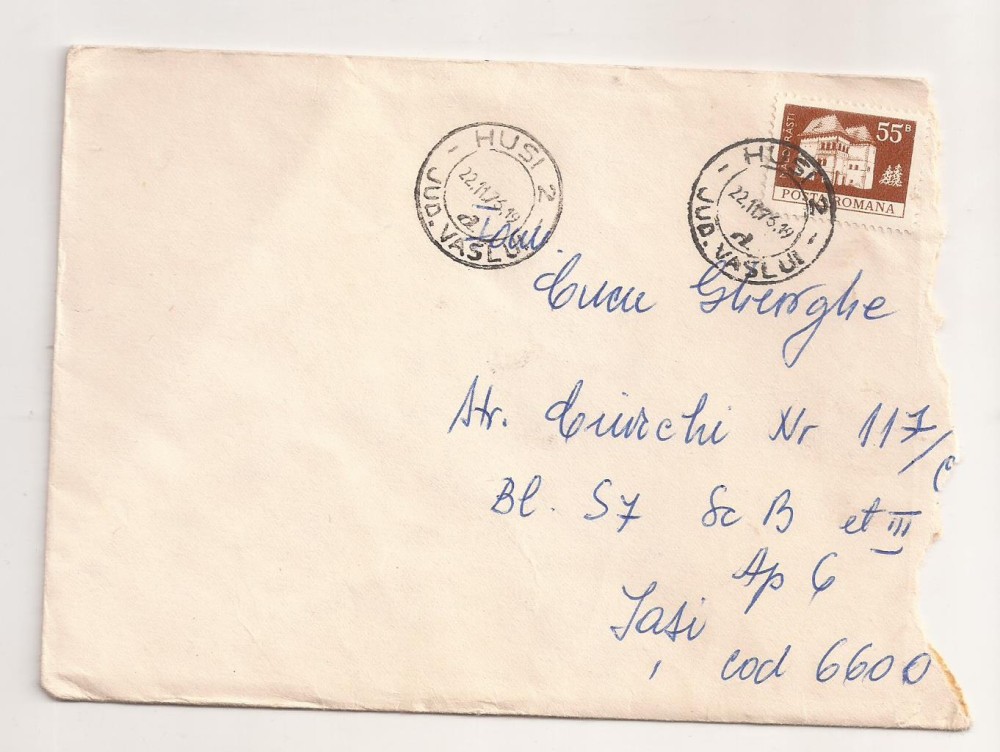 HUSI 2
22.11.75.19
a
JUD. VASLUI
HUSI 2
22.11.75.19
a
JUD. VASLUI
55 B
POSTA ROMANA
Cucu Gheorghe
Str. Ciurchi Nr 117/C
Bl. S7 Sc B et III
Ap 6
Iași
cod 6600